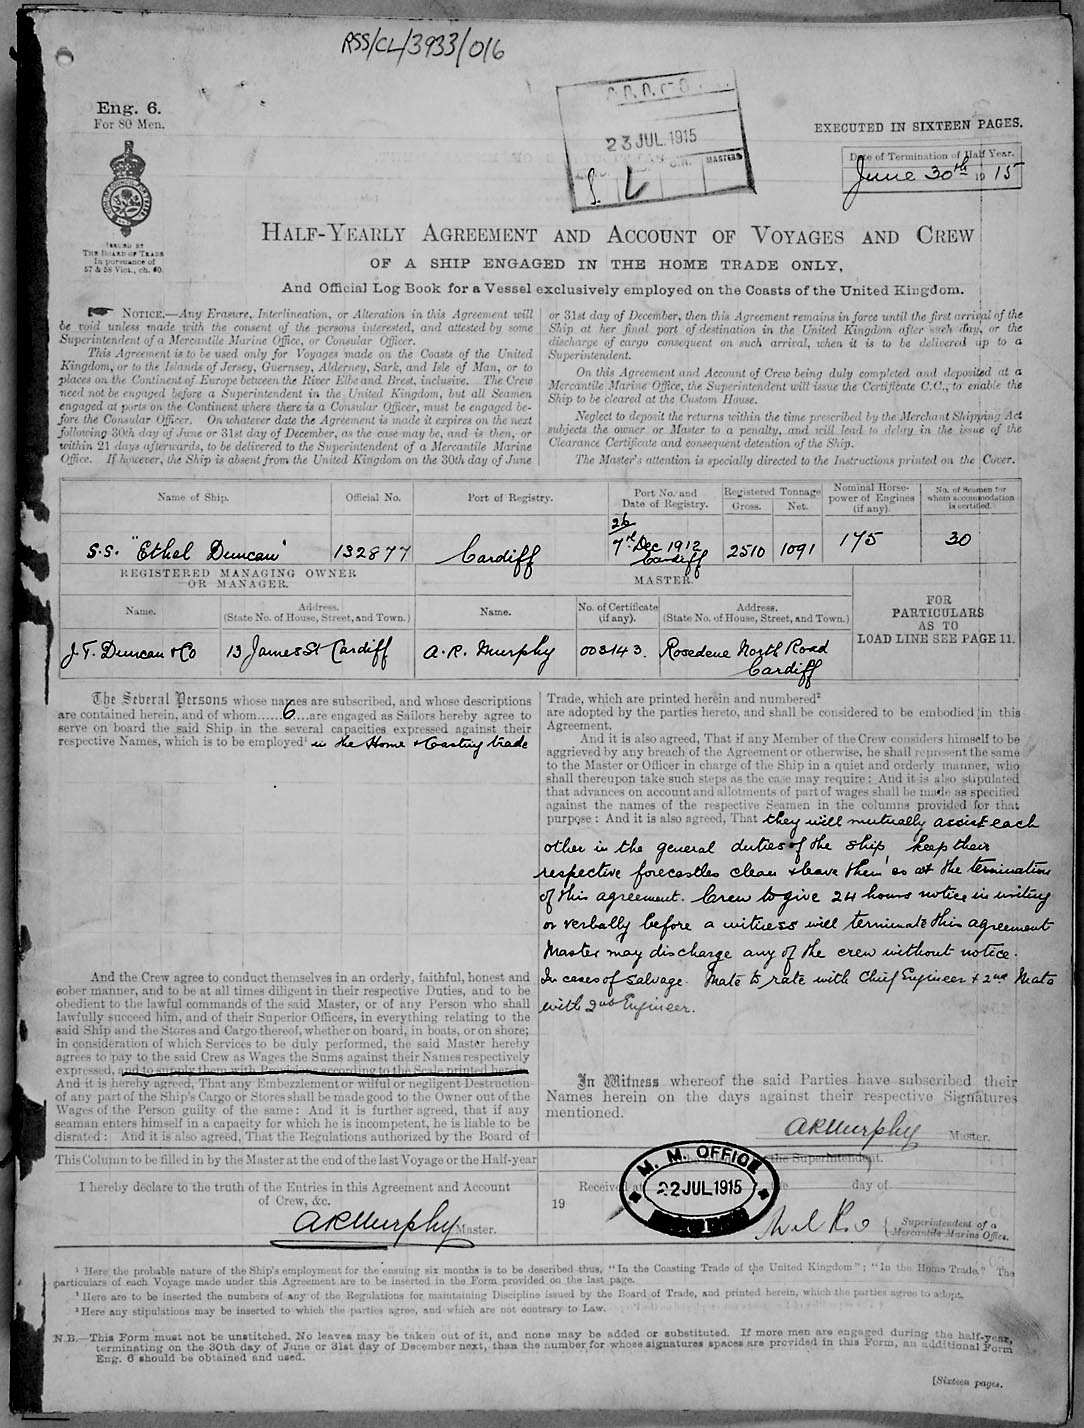 RSS/CL/3933/016
Eng. 6.
For 80 Men.
23 JUL.1915
MASTERS
EXECUTED IN SIXTEEN PAGES.
Date of Termination of Half Year.
June 30th 1915
ISSUED BY
THE BOARD OF TRADE
In pursuance of
57 & 58 Vict., ch. 60.
HALF-YEARLY AGREEMENT AND ACCOUNT OF VOYAGES AND CREW
OF A SHIP ENGAGED IN THE HOME TRADE ONLY,
And Official Log Book for a Vessel exclusively employed on the Coasts of the United Kingdom.
NOTICE.—Any Erasure, Interlineation, or Alteration in this Agreement will
be void unless made with the consent of the persons interested, and attested by some
Superintendent of a Mercantile Marine Office, or Consular Officer.
This Agreement is to be used only for Voyages made on the Coasts of the United
Kingdom, or to the Islands of Jersey, Guernsey, Alderney, Sark, and Isle of Man, or to
places on the Continent of Europe between the River Elbe and Brest, inclusive. The Crew
need not be engaged before a Superintendent in the United Kingdom, but all Seamen
engaged at ports on the Continent where there is a Consular Officer, must be engaged be-
fore the Consular Officer. On whatever date the Agreement is made it expires on the next
following 30th day of June or 31st day of December, as the case may be, and is then, or
within 21 days afterwards, to be delivered to the Superintendent of a Mercantile Marine
Office. If however, the Ship is absent from the United Kingdom on the 30th day of June
or 31st day of December, then this Agreement remains in force until the first arrival of the
Ship at her final port of destination in the United Kingdom after such day, or the
discharge of cargo consequent on such arrival, when it is to be delivered up to a
Superintendent.
On this Agreement and Account of Crew being duly completed and deposited at a
Mercantile Marine Office, the Superintendent will issue the Certificate C.C., to enable the
Ship to be cleared at the Custom House.
Neglect to deposit the returns within the time prescribed by the Merchant Shipping Act
subjects the owner or Master to a penalty, and will lead to delay in the issue of the
Clearance Certificate and consequent detention of the Ship.
The Master's attention is specially directed to the Instructions printed on the Cover.
Name of Ship. Official No. Port of Registry. Port No. and Date of Registry. Registered Tonnage Gross. Net. Nominal Horse-power of Engines (if any). No. of Seamen for whom accommodation is certified.
S.S. "Ethel Duncan" 132877 Cardiff 26 7th Dec 1912 Cardiff 2510 1091 175 30
REGISTERED MANAGING OWNER
OR MANAGER.
MASTER.
Name. Address. (State No. of House, Street, and Town.) Name. No. of Certificate (if any). Address. (State No. of House, Street, and Town.)
FOR
PARTICULARS
AS TO
LOAD LINE SEE PAGE 11.
J. T. Duncan & Co 13 James St Cardiff A. R. Murphy 003143. Rosedene North Road Cardiff
The Several Persons whose names are subscribed, and whose descriptions
are contained herein, and of whom......6...are engaged as Sailors hereby agree to
serve on board the said Ship in the several capacities expressed against their
respective Names, which is to be employed¹ in the Home & Coasting trade
And the Crew agree to conduct themselves in an orderly, faithful, honest and
sober manner, and to be at all times diligent in their respective Duties, and to be
obedient to the lawful commands of the said Master, or of any Person who shall
lawfully succeed him, and of their Superior Officers, in everything relating to the
said Ship and the Stores and Cargo thereof, whether on board, in boats, or on shore;
in consideration of which Services to be duly performed, the said Master hereby
agrees to pay to the said Crew as Wages the Sums against their Names respectively
expressed, and to supply them with Provisions according to the Scale printed herein
And it is hereby agreed, That any Embezzlement or wilful or negligent Destruction
of any part of the Ship's Cargo or Stores shall be made good to the Owner out of the
Wages of the Person guilty of the same: And it is further agreed, that if any
seaman enters himself in a capacity for which he is incompetent, he is liable to be
disrated: And it is also agreed, That the Regulations authorized by the Board of
Trade, which are printed herein and numbered²
are adopted by the parties hereto, and shall be considered to be embodied in this
Agreement.
And it is also agreed, That if any Member of the Crew considers himself to be
aggrieved by any breach of the Agreement or otherwise, he shall represent the same
to the Master or Officer in charge of the Ship in a quiet and orderly manner, who
shall thereupon take such steps as the case may require: And it is also stipulated
that advances on account and allotments of part of wages shall be made as specified
against the names of the respective Seamen in the columns provided for that
purpose: And it is also agreed, That they will mutually assist each
other in the general duties of the ship, keep their
respective forecastles clean & leave them so at the termination
of this agreement. Crew to give 24 hours notice in writing
or verbally before a witness will terminate this agreement
Master may discharge any of the crew without notice.
In cases of salvage. Mate to rate with Chief Engineer & 2nd Mate
with 2nd Engineer.
In Witness whereof the said Parties have subscribed their
Names herein on the days against their respective Signatures
mentioned.
A R Murphy Master.
This Column to be filled in by the Master at the end of the last Voyage or the Half-year
the Superintendent.
I hereby declare to the truth of the Entries in this Agreement and Account
of Crew, &c.
A R Murphy Master.
Received at
day of
19
M. M. OFFICE
22 JUL 1915
Superintendent of a
Mercantile Marine Office.
¹ Here the probable nature of the Ship's employment for the ensuing six months is to be described thus, "In the Coasting Trade of the United Kingdom"; "In the Home Trade." The
particulars of each Voyage made under this Agreement are to be inserted in the Form provided on the last page.
² Here are to be inserted the numbers of any of the Regulations for maintaining Discipline issued by the Board of Trade, and printed herein, which the parties agree to adopt.
³ Here any stipulations may be inserted to which the parties agree, and which are not contrary to Law.
N.B.—This Form must not be unstitched. No leaves may be taken out of it, and none may be added or substituted. If more men are engaged during the half-year,
terminating on the 30th day of June or 31st day of December next, than the number for whose signatures spaces are provided in this Form, an additional Form
Eng. 6 should be obtained and used.
[Sixteen pages.